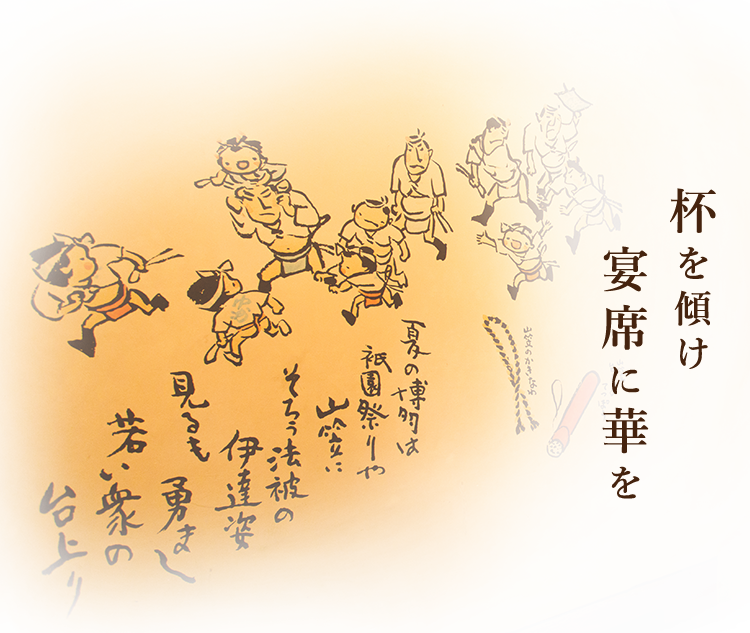 杯を傾け
宴席に華を
山笠のかきなわ
夏の博多は
祇園祭りや
山笠に
そろう法被の
伊達姿
見るも勇まし
若い衆の
台上り